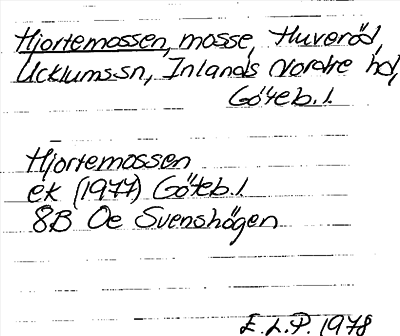 Hjortemossen, mosse, Huveröd,
Ucklums sn, Inlands Nordre hd,
Göteb.l.
Hjortemossen
ek (1977) Göteb.l.
8B Oe Svenshögen
E.L.P. 1978